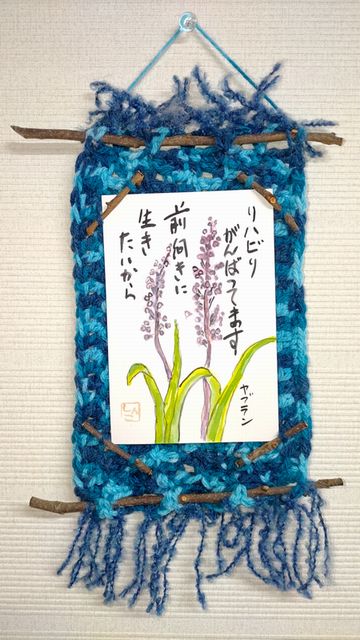 リハビリ
がんばってます
前向きに
生き
たいから
ヤブラン